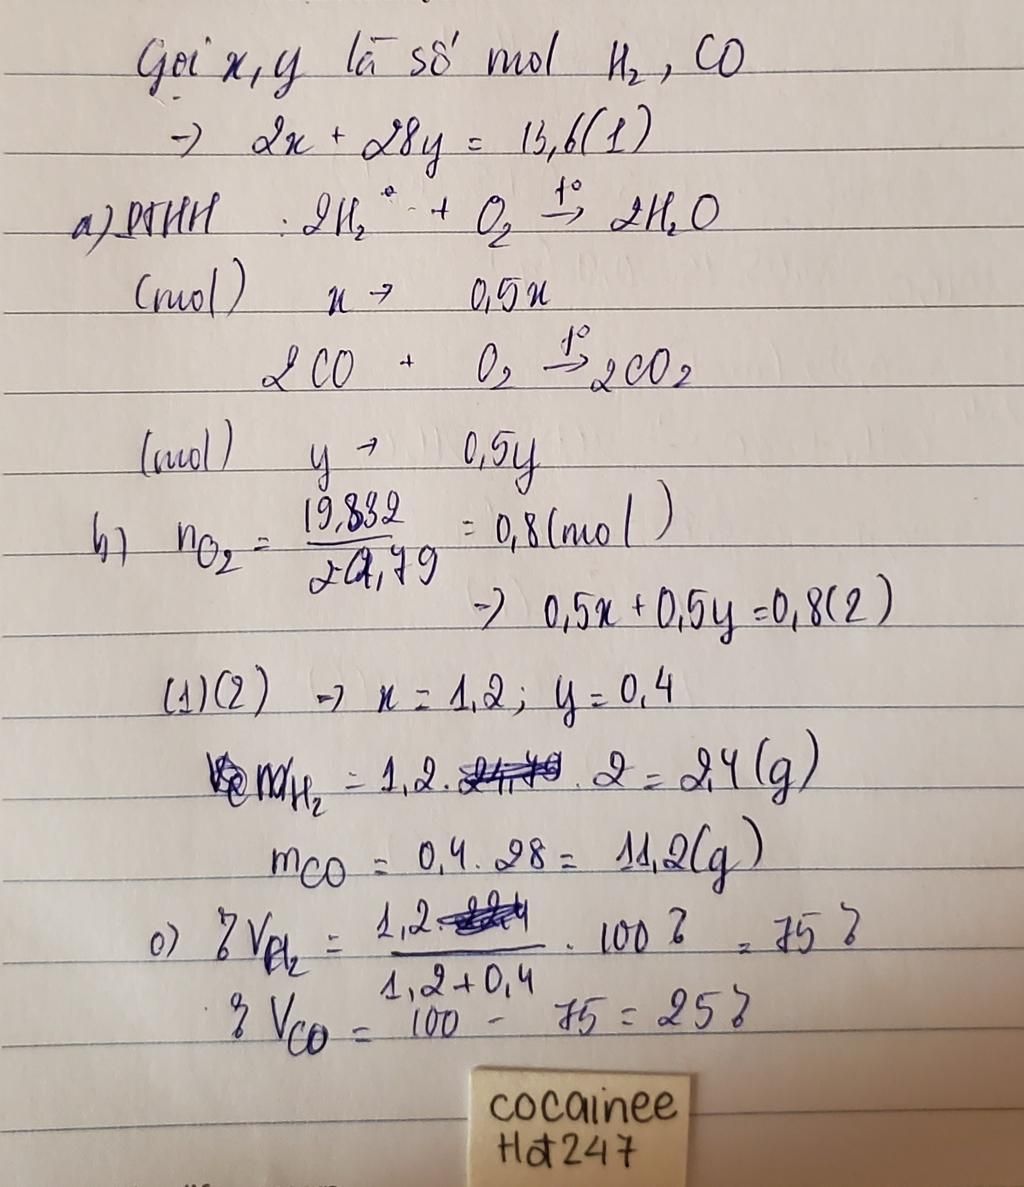 Gọi x, y là số mol H₂, CO
→ 2x + 28y = 13,6(1)
a) PTHH : 2H₂ + O₂ t°→ 2H₂O
(mol) x → 0,5x
2CO + O₂ t°→ 2CO₂
(mol) y → 0,5y
b) nO₂ = 19,832/24,79 = 0,8(mol)
→ 0,5x + 0,5y = 0,8(2)
(1)(2) → x = 1,2; y = 0,4
mH₂ = 1,2 . 2 = 2,4(g)
mCO = 0,4 . 28 = 11,2(g)
c) % VH₂ = 1,2/(1,2 + 0,4) . 100% = 75%
% VCO = 100 - 75 = 25%
cocainee
Hot247